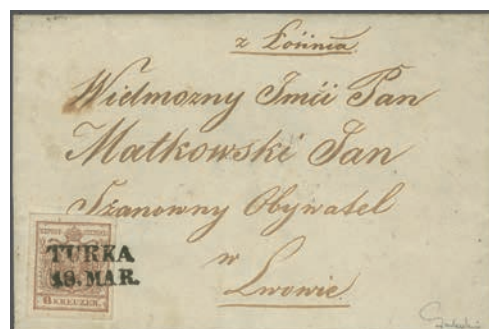 z Łosińca
Wielmożny Jmći Pan
Matkowski Jan
Szanowny Obywatel
w
Lwowie
TURKA
18. MAR.
6 KREUZER